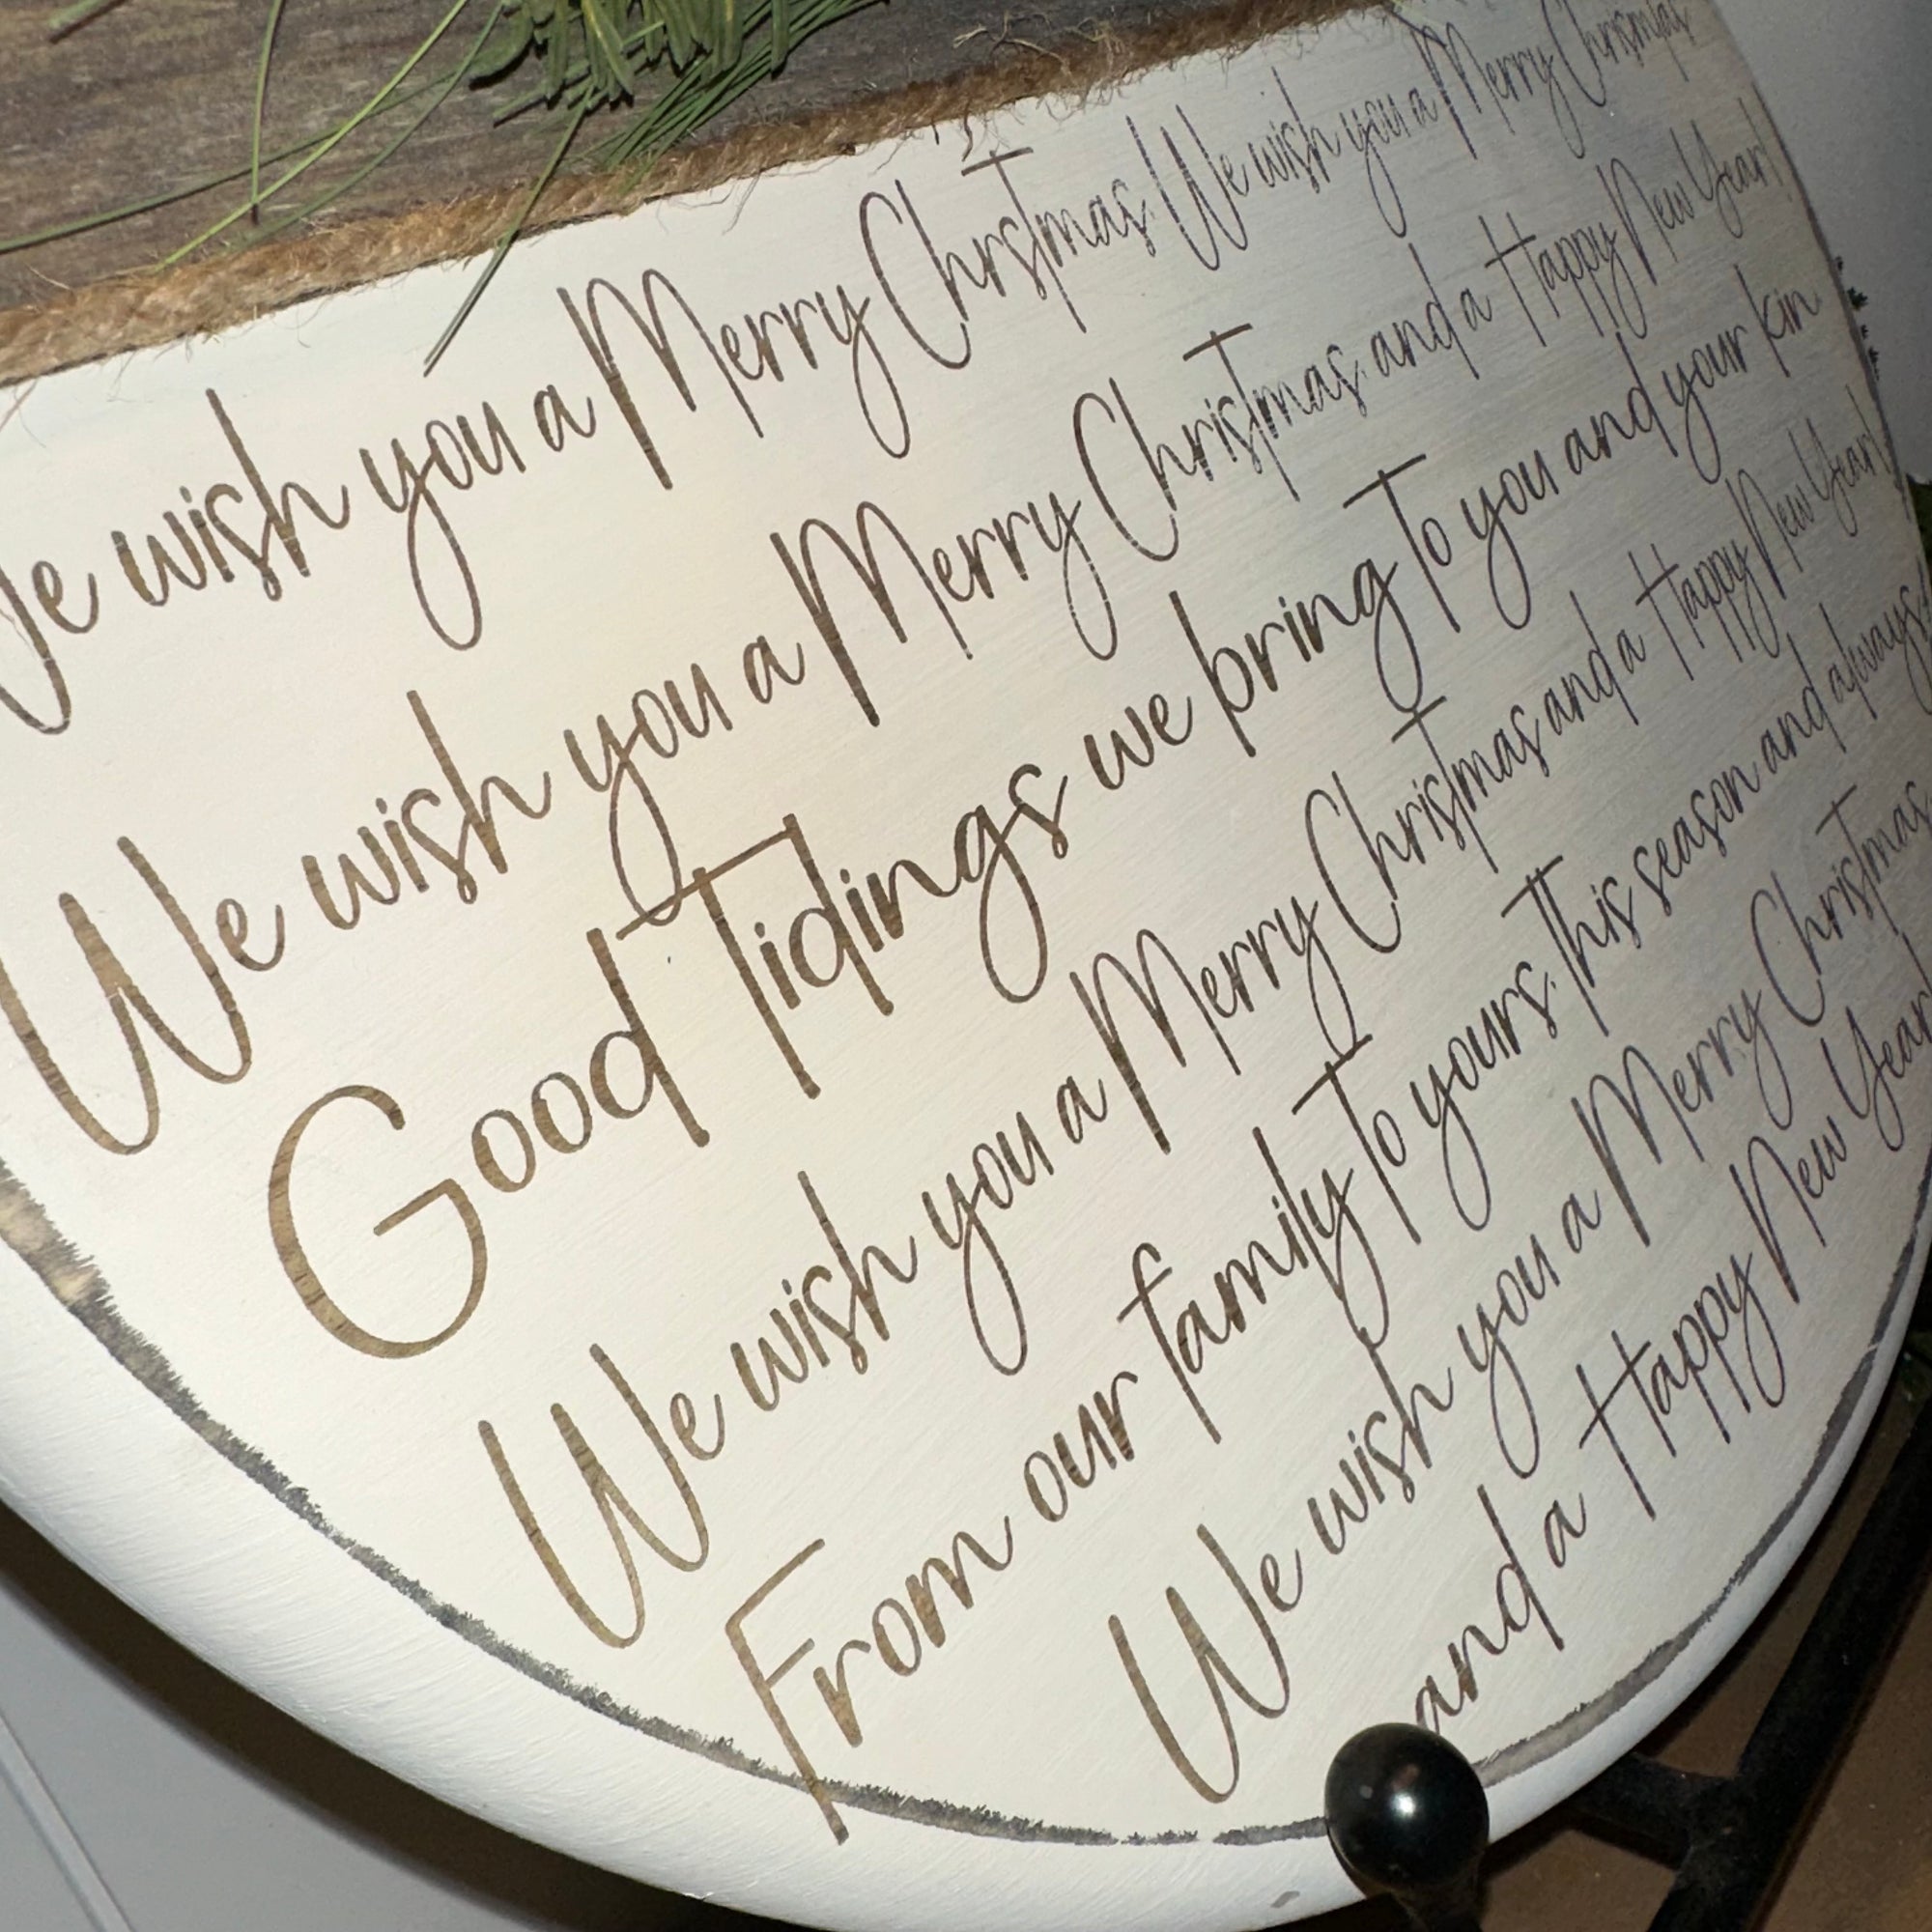 We wish you a Merry Chrstmas. We wish you a Merry Christmas
We wish you a Merry Christmas. and a Happy New Year!
Good Tidings we bring to you and your kin
We wish you a Merry Christmas and a Happy New Year!
From our family to yours. This season and always
We wish you a Merry Christmas
and a Happy New Year!